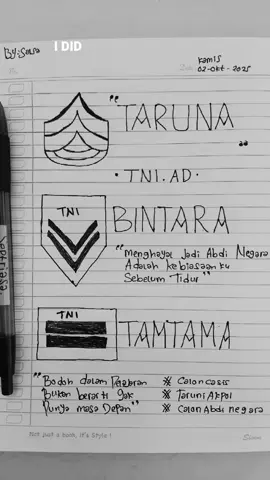 By: Salsa
I DID
Kamis
No.
Date: 02-Okt-2025
"TARUNA"
• TNI.AD •
TNI
BINTARA
"Menghayal Jadi Abdi Negara
Adalah kebiasaan ku
Sebelum Tidur"
TNI
TAMTAMA
"Bodoh dalam Pelajaran
Bukan berarti gak
Punya masa Depan"
※ Calon casis
※ Taruni Akpol
※ Calon Abdi negara
Not just a book, It's Style!